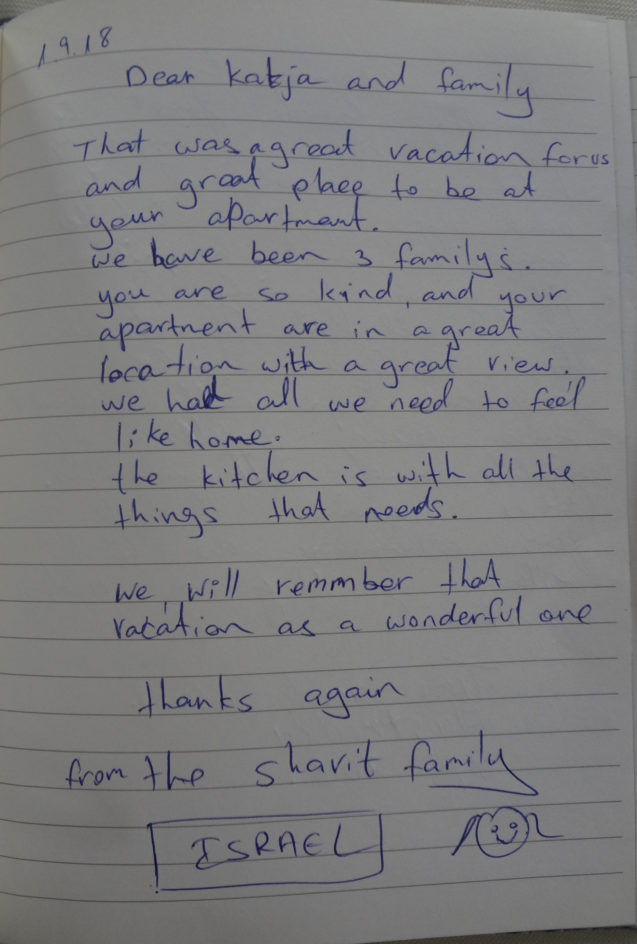 1.9.18
Dear Katja and family
That was a great vacation for us
and great place to be at
your apartment.
we have been 3 familys.
you are so kind, and your
apartment are in a great
location with a great view.
we had all we need to feel
like home.
the kitchen is with all the
things that needs.
we will remmber that
vacation as a wonderful one
thanks again
from the shavit family
ISRAEL